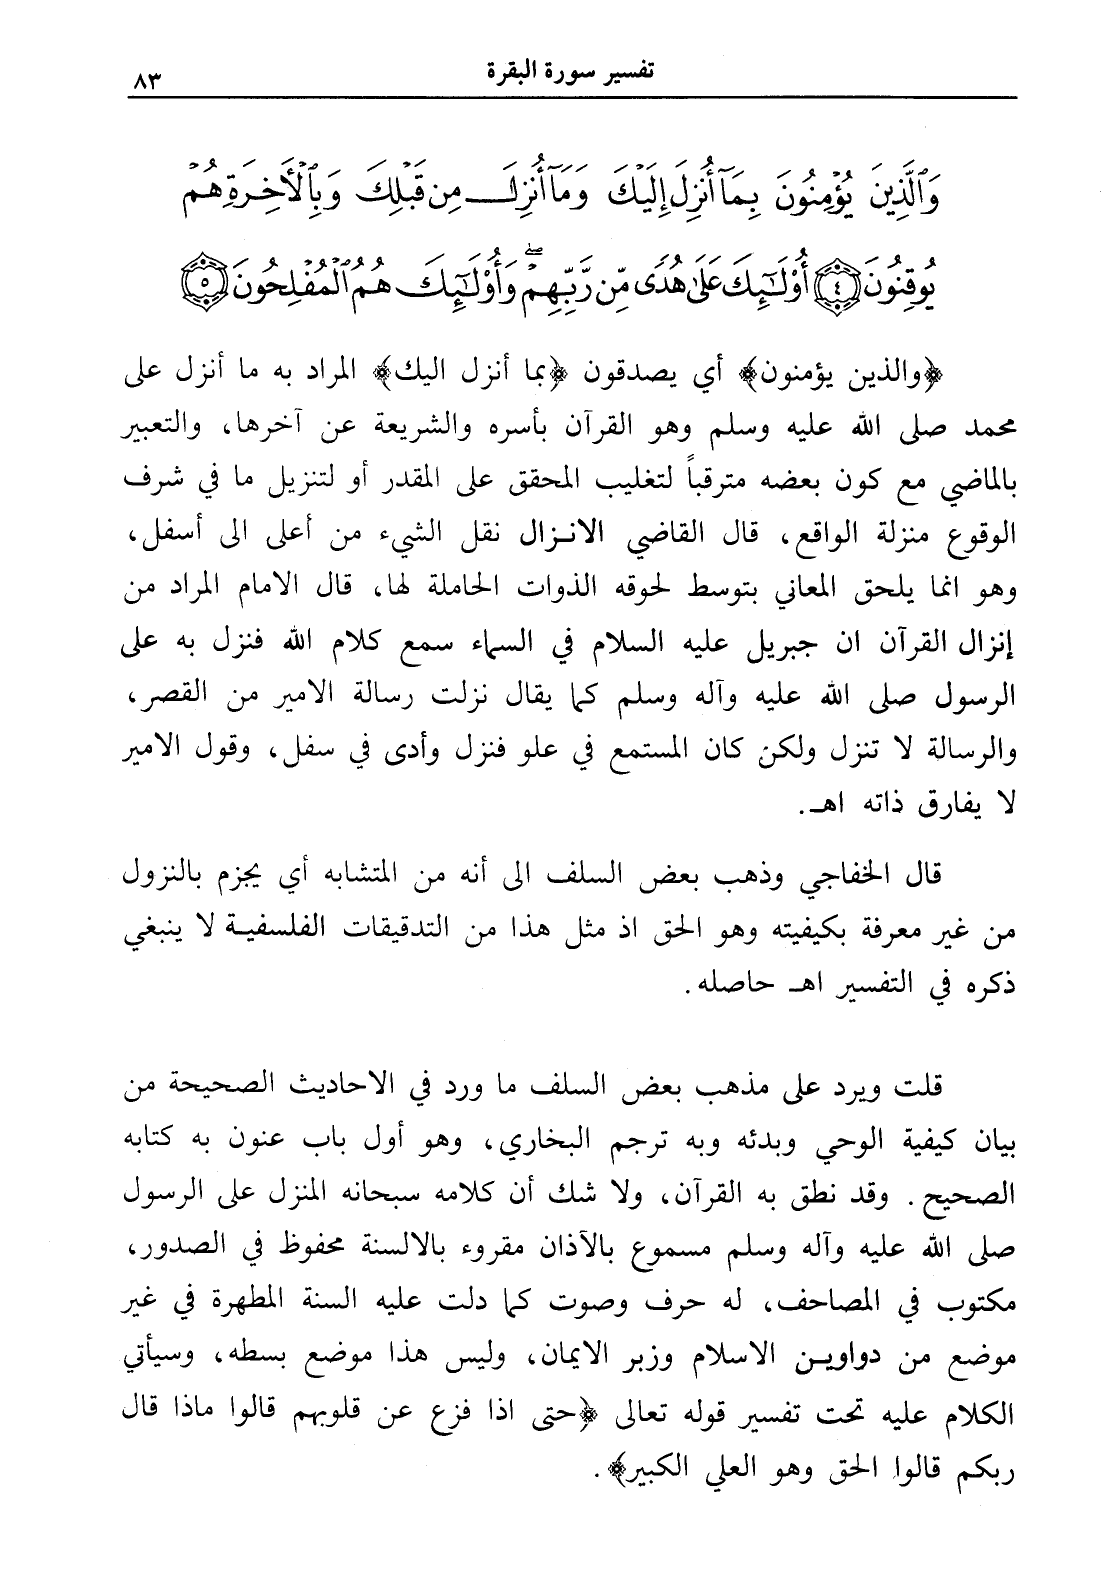 تفسير سورة البقرة
٨٣
وَٱلَّذِينَ يُؤْمِنُونَ بِمَآ أُنزِلَ إِلَيْكَ وَمَآ أُنزِلَ مِن قَبْلِكَ وَبِٱلْأَخِرَةِ هُمْ
يُوقِنُونَ ﴿٤﴾ أُوْلَٰٓئِكَ عَلَىٰ هُدًى مِّن رَّبِّهِمْ ۖ وَأُوْلَٰٓئِكَ هُمُ ٱلْمُفْلِحُونَ ﴿٥﴾
﴿والذين يؤمنون﴾ أي يصدقون ﴿بما أنزل اليك﴾ المراد به ما أنزل على
محمد صلى الله عليه وسلم وهو القرآن بأسره والشريعة عن آخرها، والتعبير
بالماضي مع كون بعضه مترقباً لتغليب المحقق على المقدر أو لتنزيل ما في شرف
الوقوع منزلة الواقع، قال القاضي الانزال نقل الشيء من أعلى الى أسفل،
وهو انما يلحق المعاني بتوسط لحوقه الذوات الحاملة لها، قال الامام المراد من
إنزال القرآن ان جبريل عليه السلام في السماء سمع كلام الله فنزل به على
الرسول صلى الله عليه وآله وسلم كما يقال نزلت رسالة الامير من القصر،
والرسالة لا تنزل ولكن كان المستمع في علو فنزل وأدى في سفل، وقول الامير
لا يفارق ذاته اهـ.
قال الخفاجي وذهب بعض السلف الى أنه من المتشابه أي يجزم بالنزول
من غير معرفة بكيفيته وهو الحق اذ مثل هذا من التدقيقات الفلسفية لا ينبغي
ذكره في التفسير اهـ حاصله.
قلت ويرد على مذهب بعض السلف ما ورد في الاحاديث الصحيحة من
بيان كيفية الوحي وبدئه وبه ترجم البخاري، وهو أول باب عنون به كتابه
الصحيح. وقد نطق به القرآن، ولا شك أن كلامه سبحانه المنزل على الرسول
صلى الله عليه وآله وسلم مسموع بالآذان مقروء بالالسنة محفوظ في الصدور،
مكتوب في المصاحف، له حرف وصوت كما دلت عليه السنة المطهرة في غير
موضع من دواوين الاسلام وزبر الايمان، وليس هذا موضع بسطه، وسيأتي
الكلام عليه تحت تفسير قوله تعالى ﴿حتى اذا فزع عن قلوبهم قالوا ماذا قال
ربكم قالوا الحق وهو العلي الكبير﴾.